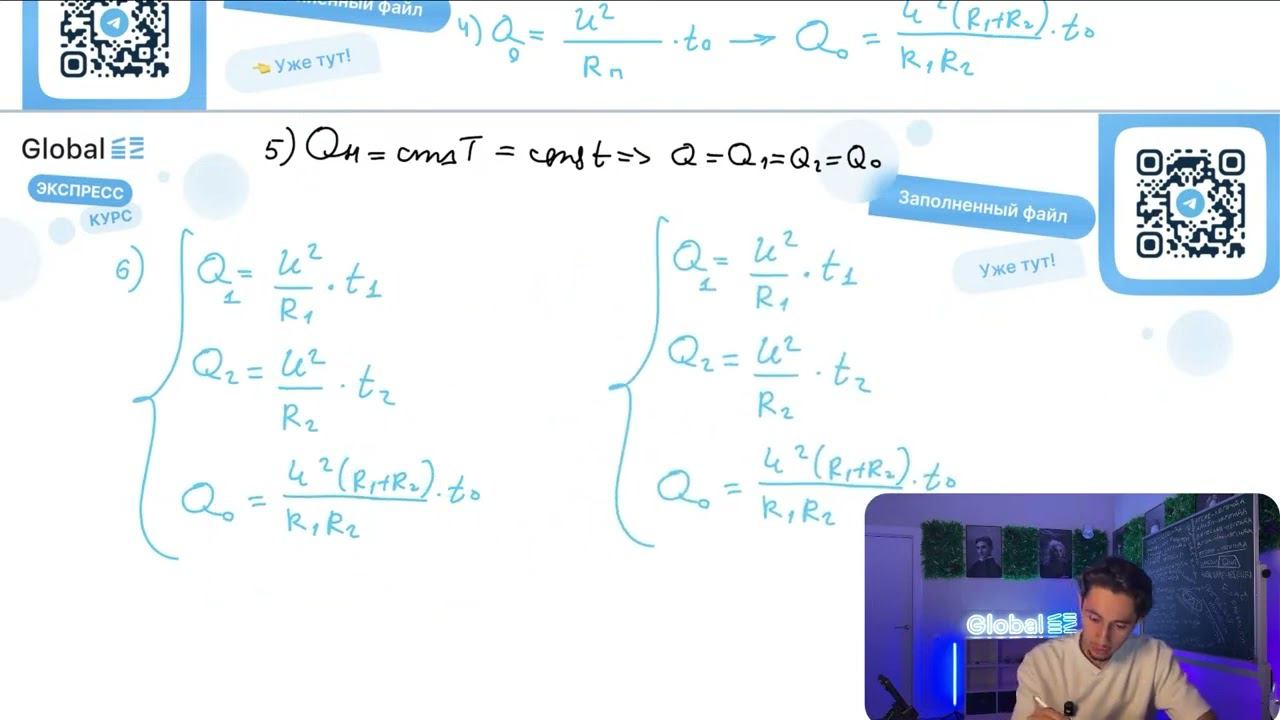 заполненный файл
Уже тут!
4) Q₀ = u²/Rп · t₀ → Q₀ = u²(R₁+R₂)/R₁R₂ · t₀
Global EE
ЭКСПРЕСС
КУРС
5) Qн = cmΔT = const => Q = Q₁ = Q₂ = Q₀
Заполненный файл
Уже тут!
6)
Q₁ = u²/R₁ · t₁
Q₂ = u²/R₂ · t₂
Q₀ = u²(R₁+R₂)/R₁R₂ · t₀
Q₁ = u²/R₁ · t₁
Q₂ = u²/R₂ · t₂
Q₀ = u²(R₁+R₂)/R₁R₂ · t₀
Global EE